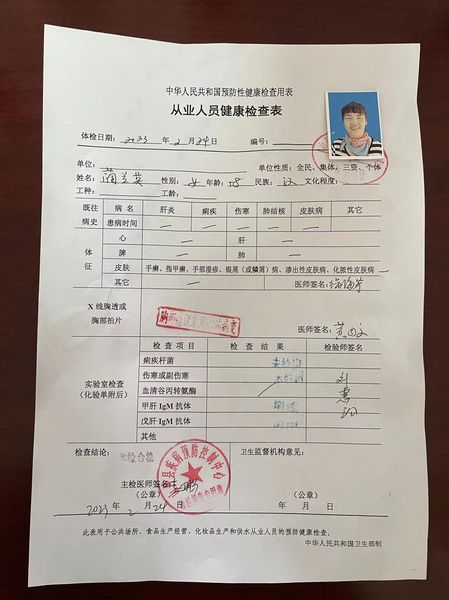 中华人民共和国预防性健康检查用表
从业人员健康检查表
体检日期: 2023 年 2 月 24日 编号:
单位: 单位性质: 全民、集体、三资、个体
姓名: 性别: 女 年龄: 民族: 汉 文化程度:
工种: 工龄:
既往病史 病名 肝炎 痢疾 伤寒 肺结核 皮肤病 其它
患病时间 — — — — —
体征 心 — 肝 —
脾 — 肺 —
皮肤 手癣、指甲癣、手部湿疹、银屑(或鳞屑)病、渗出性皮肤病、化脓性皮肤病 —
其它 — 医师签名:
X 线胸透或
胸部拍片
医师签名:
实验室检查
(化验单附后)
检查项目 检查结果 检验师签名
痢疾杆菌
伤寒或副伤寒
血清谷丙转氨酶
甲肝 IgM 抗体
戊肝 IgM 抗体
其他
检查结论: 体检合格 卫生监督机构意见:
县疾病预防控制中心
主检医师签名:
(公章) (公章)
2023 年 2 月 24 日 年 月 日
此表用于公共场所、食品生产经营、化妆品生产和供水从业人员的预防健康检查。
中华人民共和国卫生部制